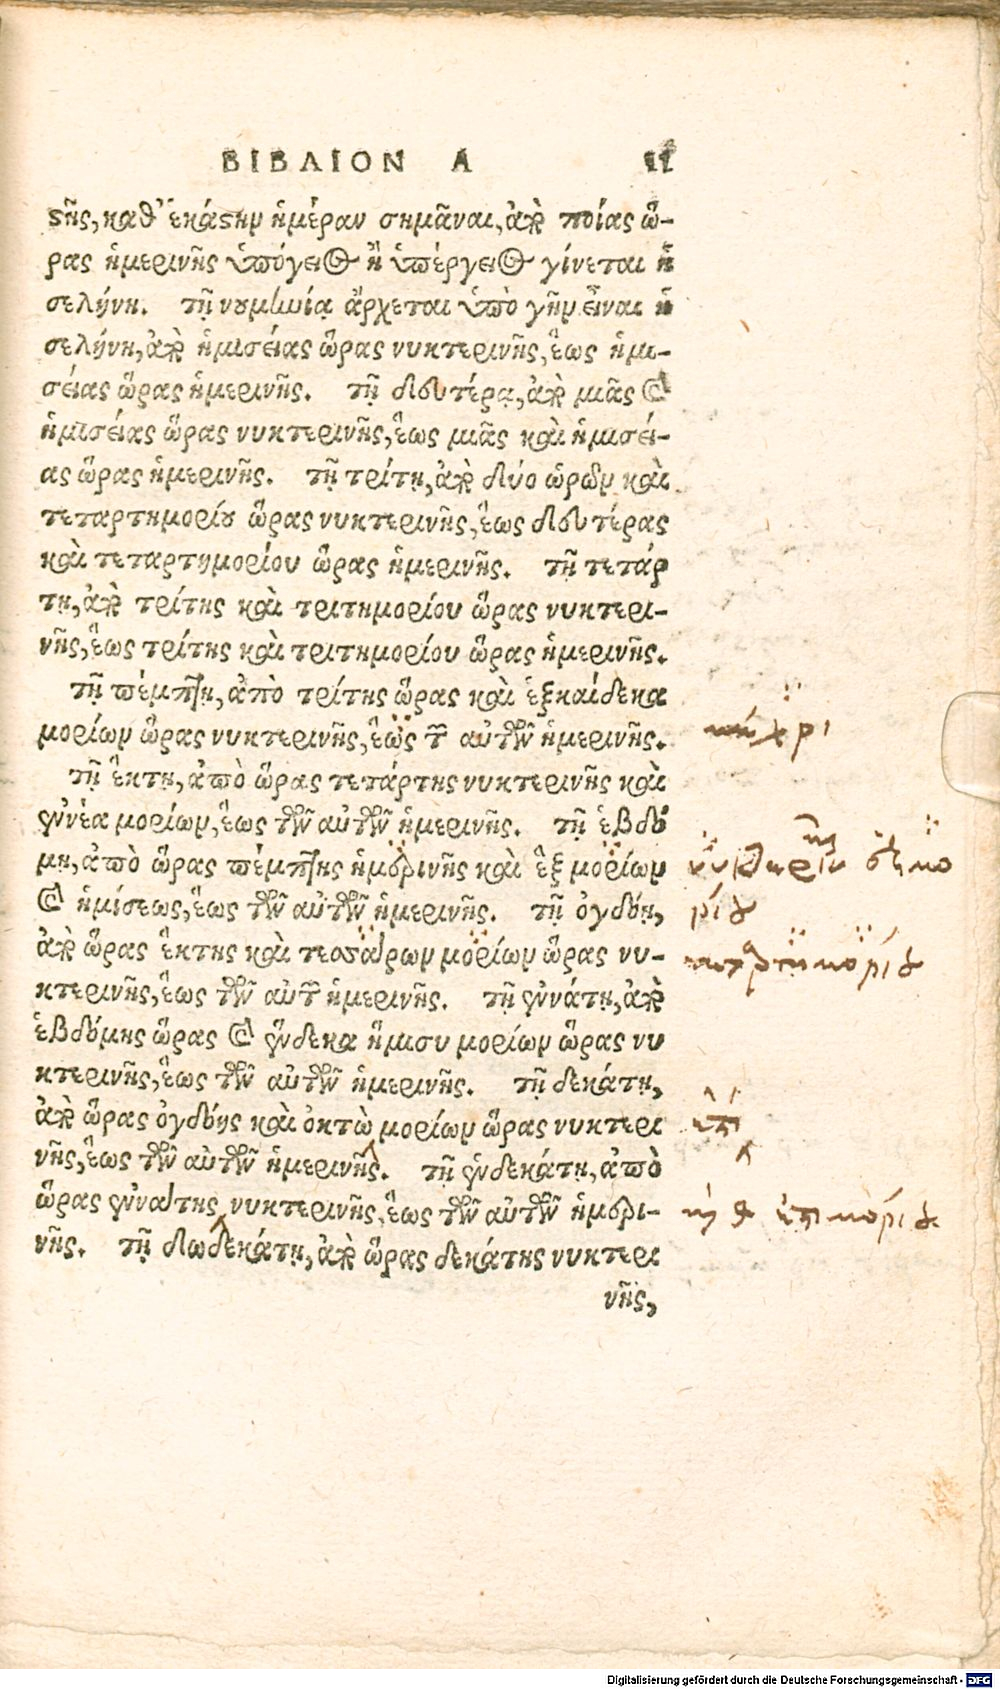 ΒΙΒΛΙΟΝ Α 11
ϛῆς, καθ' ἑκάϛην ἡμέραν σημᾶναι, ἀπὸ ποίας ὥ-
ρας ἡμερινῆς ὑπόγειος ἢ ὑπέργειος γίνεται ἡ
σελήνη. τῇ νουμηνίᾳ ἄρχεται ὑπὸ γῆν εἶναι ἡ
σελήνη, ἀπὸ ἡμισείας ὥρας νυκτερινῆς, ἕως ἡμι-
σείας ὥρας ἡμερινῆς. τῇ δευτέρᾳ, ἀπὸ μιᾶς καὶ
ἡμισείας ὥρας νυκτερινῆς, ἕως μιᾶς καὶ ἡμισεί-
ας ὥρας ἡμερινῆς. τῇ τρίτῃ, ἀπὸ δύο ὡρῶν καὶ
τεταρτημορίου ὥρας νυκτερινῆς, ἕως δευτέρας
καὶ τεταρτημορίου ὥρας ἡμερινῆς. τῇ τετάρ
τῃ, ἀπὸ τρίτης καὶ τριτημορίου ὥρας νυκτερι-
νῆς, ἕως τρίτης καὶ τριτημορίου ὥρας ἡμερινῆς.
τῇ πέμπτῃ, ἀπὸ τρίτης ὥρας καὶ ἑξκαίδεκα
μορίων ὥρας νυκτερινῆς, ἕως τῶν αὐτῶν ἡμερινῆς.
τῇ ἕκτῃ, ἀπὸ ὥρας τετάρτης νυκτερινῆς καὶ
ἐννέα μορίων, ἕως τῶν αὐτῶν ἡμερινῆς. τῇ ἑβδό
μῃ, ἀπὸ ὥρας πέμπτης ἡμερινῆς καὶ ἓξ μορίων
καὶ ἡμίσεως, ἕως τῶν αὐτῶν ἡμερινῆς. τῇ ὀγδόῃ,
ἀπὸ ὥρας ἕκτης καὶ τεσσάρων μορίων ὥρας νυ-
κτερινῆς, ἕως τῶν αὐτῶν ἡμερινῆς. τῇ ἐννάτῃ, ἀπὸ
ἑβδόμης ὥρας καὶ ἕνδεκα ἥμισυ μορίων ὥρας νυ
κτερινῆς, ἕως τῶν αὐτῶν ἡμερινῆς. τῇ δεκάτῃ,
ἀπὸ ὥρας ὀγδόης καὶ ὀκτὼ μορίων ὥρας νυκτερι
νῆς, ἕως τῶν αὐτῶν ἡμερινῆς. τῇ ἑνδεκάτῃ, ἀπὸ
ὥρας ἐννάτης νυκτερινῆς, ἕως τῶν αὐτῶν ἡμερι-
νῆς. τῇ δωδεκάτῃ, ἀπὸ ὥρας δεκάτης νυκτερι
νῆς,
Digitalisierung gefördert durch die Deutsche Forschungsgemeinschaft - DFG